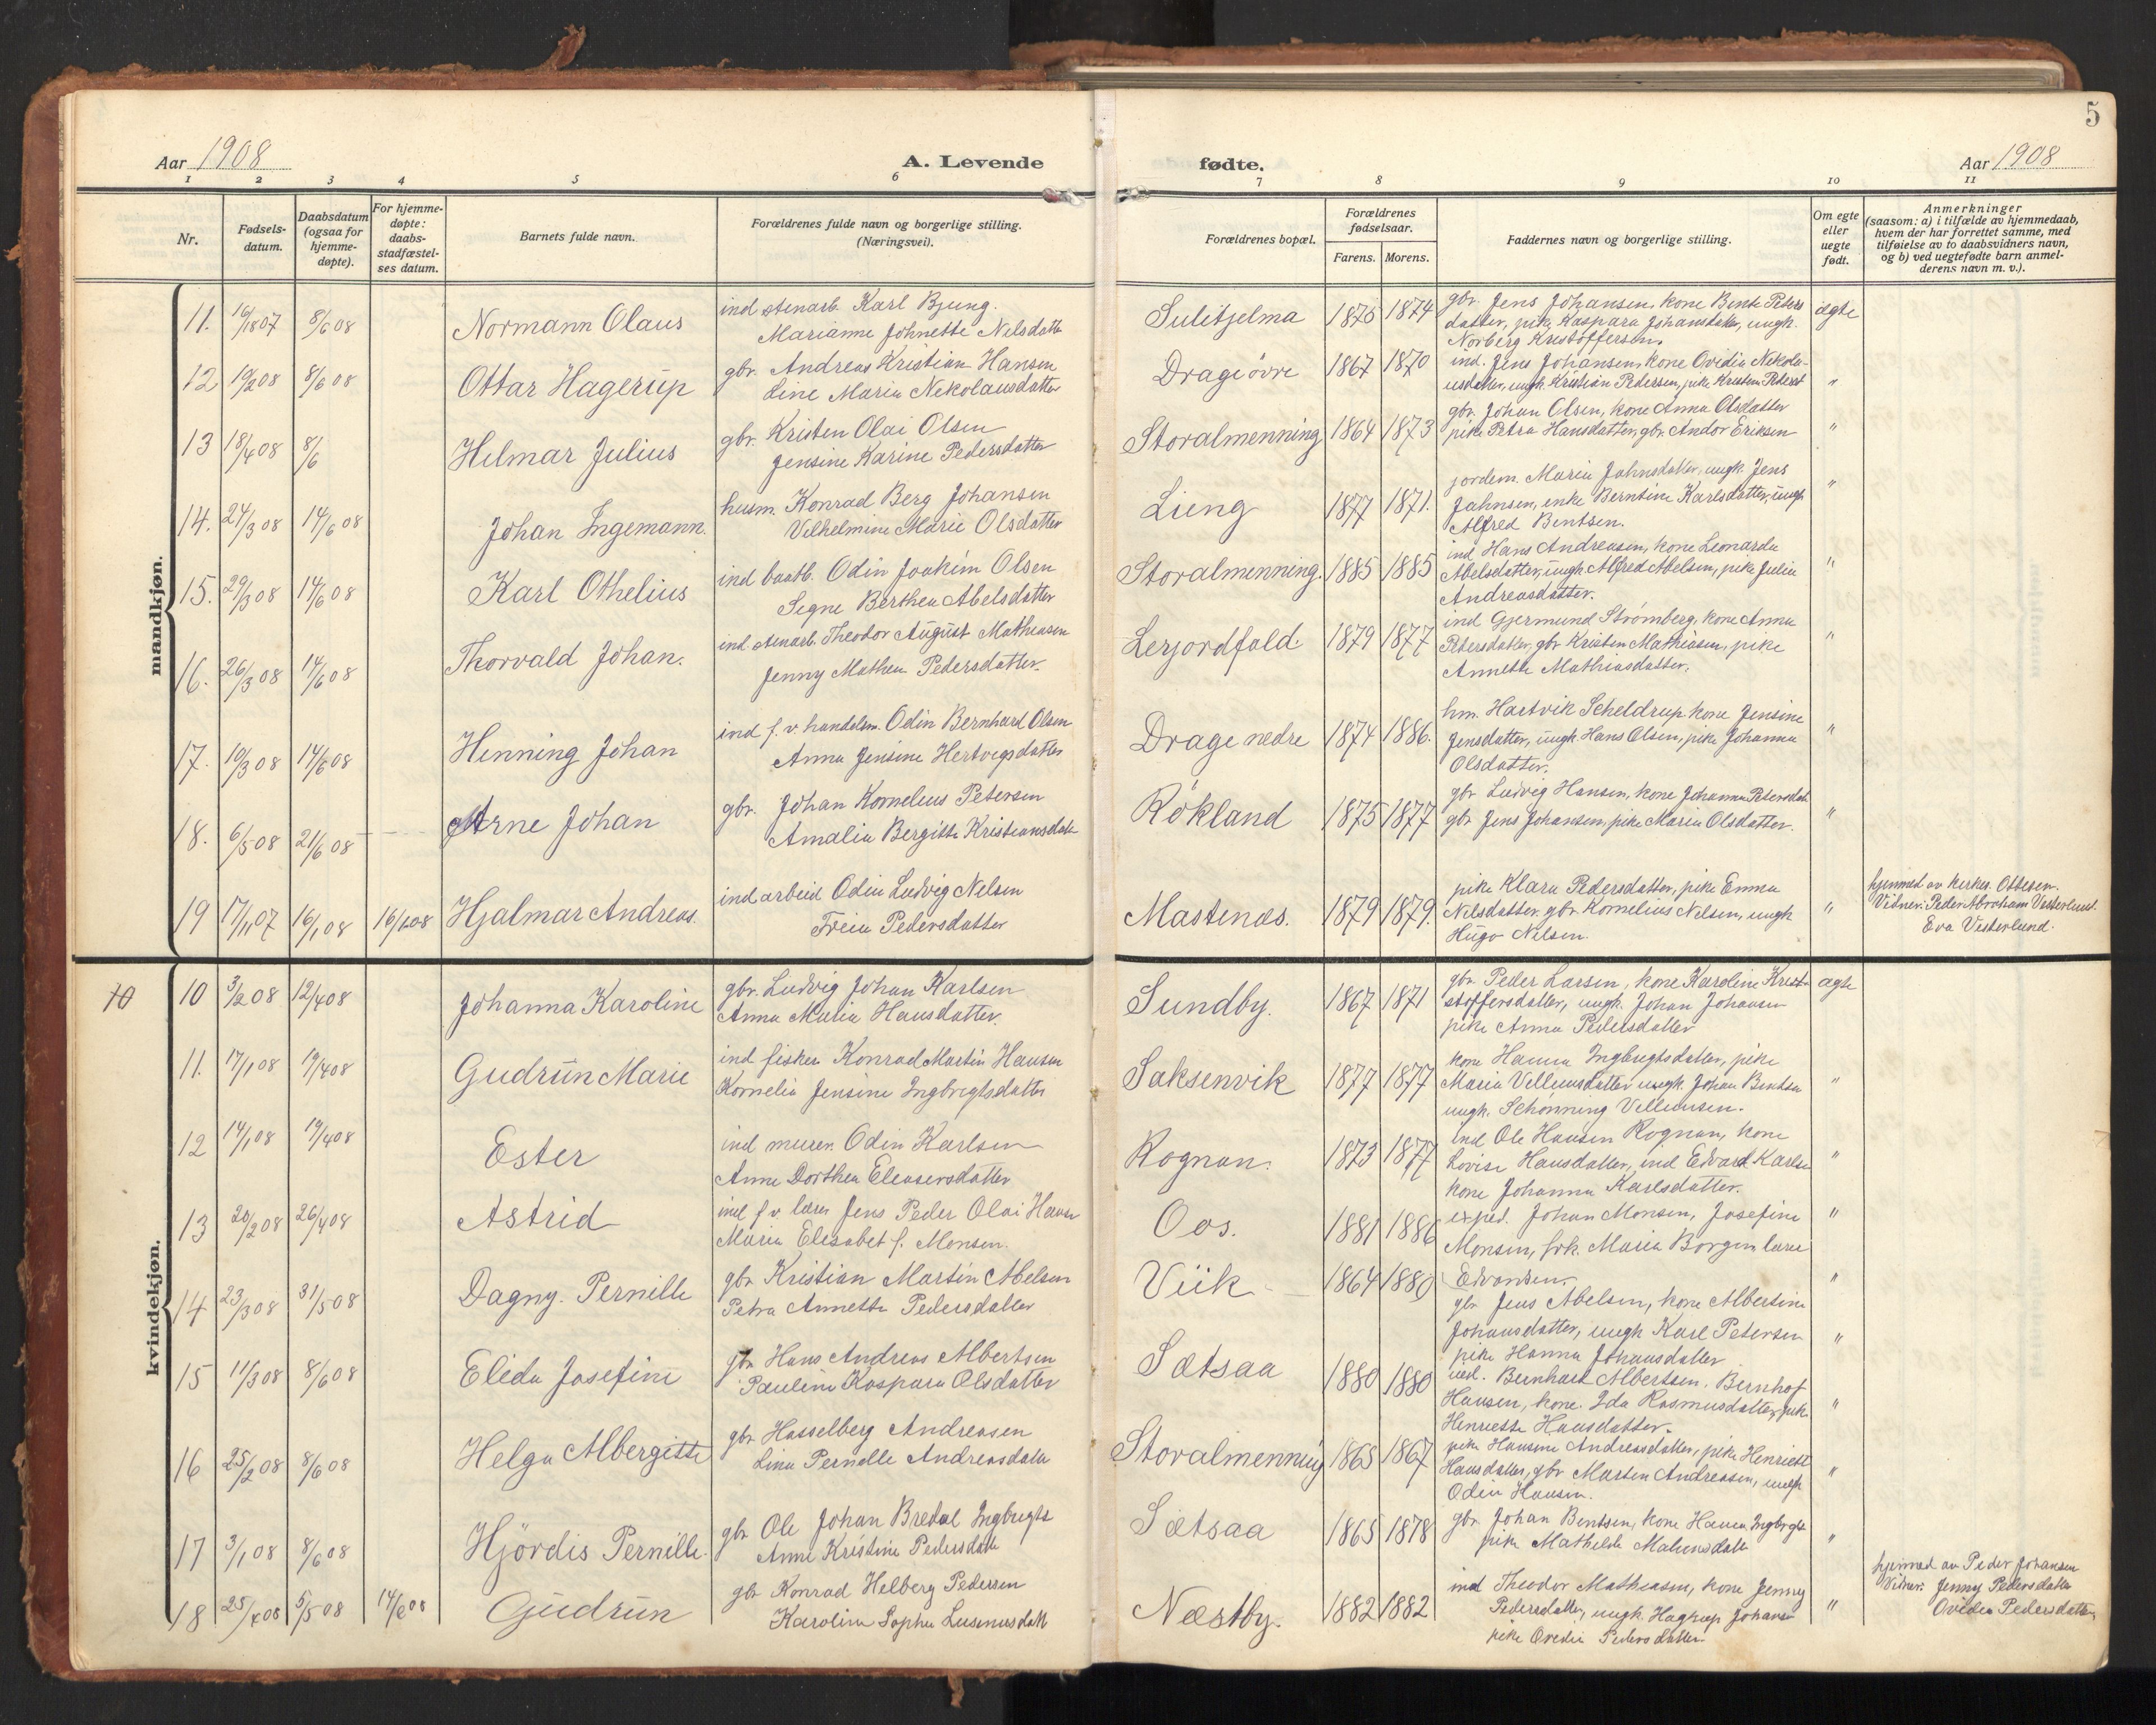 5
Aar 1908
A. Levende
fødte.
Aar 1908
1 2 3 4 5 6 7 8 9 10 11
Nr.
Fødsels-
datum.
Daabsdatum
(ogsaa for
hjemme-
døpte).
For hjemme-
døpte:
daabs-
stadfæstel-
ses datum.
Barnets fulde navn.
Forældrenes fulde navn og borgerlige stilling.
(Næringsvei).
Forældrenes bopæl.
Forældrenes
fødselsaar.
Farens. Morens.
Faddernes navn og borgerlige stilling.
Om egte
eller
uegte
født.
Anmerkninger
(saasom: a) i tilfælde av hjemmedaab,
hvem der har forrettet samme, med
tilføielse av to daabsvidners navn,
og b) ved uegtefødte barn anmel-
derens navn m. v.).
mandkjøn.
11. 8/6 08 Normann Olaus
ind stenarb. Karl Bjung.
Marianne Johnette Nilsdatte
Sulitjelma 1875 1874
gbr. Jens Johansen, kone Bente Peters
datter, pike Kaspara Johansdatter, ungk.
Norberg Kristoffersen.
ægte
12 19/2 08 8/6 08 Ottar Hagerup
gbr. Andreas Kristian Hansen
Line Maria Nekolausdatter
Drage övre 1867 1870
ind. Jens Johansen, kone Ovidia Nekola-
usdatter, ungk. Kristian Pedersen, pike Kristine Peterst
"
13 18/4 08 8/6 Hilmar Julius
gbr. Kristen Olai Olsen
Jensine Karine Pedersdatter
Storalmenning 1864 1873
gbr. Johan Olsen, kone Anna Olsdatter
pike Petra Hansdatter, gbr. Andor Eriksen
"
14. 24/3 08 14/6 08 Johan Ingemann.
husm. Konrad Berg Johansen
Vilhelmine Marie Olsdatter
Lieng 1877 1871.
jordem. Maria Jahnsdatter, ungk. Jens
Jahnsen, enke Berntine Karlsdatter, ungk.
Alfred Bentsen.
"
15. 29/3 08 14/6 08 Karl Othelius
ind baatb. Odin Joakim Olsen
Segne Berthea Abelsdatter
Storalmenning. 1885 1885
ind Hans Andreasen, kone Leonarda
Abelsdatter, ungk Alfred Abelsen, pike Julia
Andreasdatter.
"
16. 26/3 08 14/6 08 Thorvald Johan.
ind stenarb. Theodor August Mathiasen
Jenny Mathea Pedersdatter.
Lerjordfald 1879 1877
ind Gjermund Strömberg, kone Anna
Petersdatter, gbr Kristen Mathiasen, pike
Annette Mathiasdatter.
"
17. 19/3 08 14/6 08 Henning Johan
ind f. v. handelsm. Odin Bernhard Olsen
Anna Jensine Hertvigsdatter
Drage nedre 1874 1886.
hm. Hartvik Scheldrup kone Jensine
Jensdatter, ungk. Hans Olsen, pike Johanna
Olsdatter.
"
18. 6/5 08 21/6 08 Arne Johan
gbr. Johan Kornelius Petersen
Amalia Bergitte Kristiansdatt
Rökland 1875 1877
gbr Ludvig Hansen, kone Johanna Petersdat.
gbr Jens Johansen, pike Maria Olsdatter.
"
19 17/11 07 16/1 08 Hjalmar Andreas.
ind arbeid Odin Ludvig Nelsen
Freia Pedersdatter
Mastenæs. 1879 1879.
pike Klara Pedersdatter, pike Emma
Nilsdatter. gbr. Kornelius Nilsen, ungk
Hugo Nilsen.
"
hjemmed av kirkes. Ottesen.
Vidner: Peder Abraham Vesterlund.
Eva Vesterlund.
kvindekjøn.
10 10 3/2 08 12/4 08 Johanna Karoline
gbr. Ludvig Johan Karlsen
Anna Maria Hansdatter.
Sundby. 1867 1871
gbr. Peder Larsen, kone Karoline Krist-
stoffersdatter, ungk. Johan Johansen
pike Anna Pedersdatter
ægte
11. 17/1 08 19/4 08 Gudrun Marie
ind fisker Konrad Martin Hansen
Kornelia Jensine Ingbrigtsdatter
Saksenvik 1877 1877
kone Hanna Ingbrigtsdatter, pike
Maria Vellumsdatter ungk. Johan Bentsen
ungk. Schönning Vellumsen.
"
12 14/1 08 19/4 08 Ester
ind murer. Odin Karlsen
Anne Dorthea Eleasersdatter
Rognan. 1873 1877
ind Ole Hansen Rognan, kone
Lovise Hansdatter, ind Edvard Karlsen
kone Johanna Karlsdatter.
"
13 20/2 08 26/4 08 Astrid
ind f. v. lærer Jens Peder Olai Hansen
Maria Elesabet f. Monsen.
Oos. 1881 1886
exped. Johan Monsen, Josefine
Monsen, frk. Maria Borgen lærer
Edvardsen.
"
14 23/3 08 31/5 08 Dagny. Pernille
gbr Kristian Martin Abelsen
Petra Annette Pedersdatter
Viik 1864 1880
gbr Jens Abelsen, kone Albertine
Johansdatter, ungk Karl Petersen
pike Hanna Johansdatter
"
15 11/3 08 8/6 08 Elida Josefine
gbr Hans Andreas Albertsen
Pauline Kaspara Olsdatter
Sætsaa 1880 1880
ind. Bernhard Albertsen. Bernhof
Hansen, kone. Ida Rasmusdatter, pike
Henriette Hansdatter.
"
16 25/2 08 8/6 08 Helga Albergitte
gbr Hasselberg Andreasen
Lina Pernelle Andreasdatter
Storalmenning 1865 1867
pike Hansine Andreasdatter, pike Henriett
Hansdatter, gbr Morten Andreasen, ungk
Odin Hansen.
"
17 3/1 08 8/6 08 Hjördis Pernille.
gbr Ole Johan Bredal Ingbrigts
Anne Kristine Pedersdatt
Sætsaa 1865 1878
gbr. Johan Bentsen, kone Hanna Ingbrigts
pike Mathilde
"
18 25/4 08 5/5 08 14/6 08 Gudrun
gbr Konrad Helberg Pedersen
Karoline Sophie
Næstby. 1882 1882
ind Theodor Mathiasen, kone Jenny
Pedersdatter, ungk. Hagerup Johansen
pike Ovedia Pedersdatter
"
hjemmed av Peder Johansen
Vidner: Jenny Pedersdatter
Ovidia Pedersdatter,